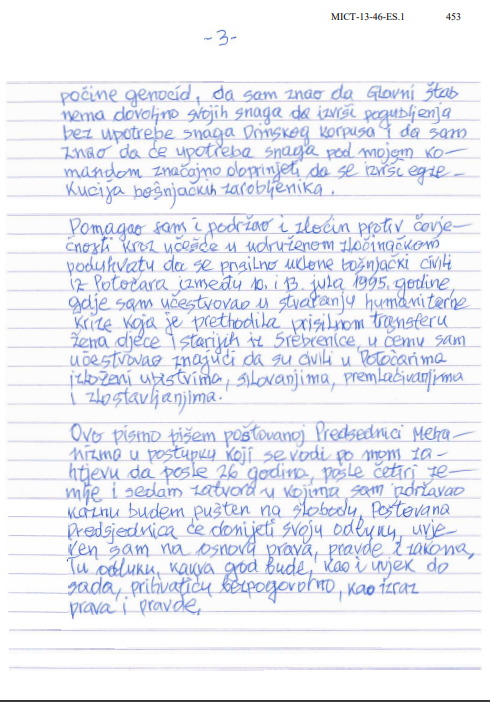 MICT-13-46-ES.1 453
-3-
počine genocid, da sam znao da Glavni štab
nema dovoljno svojih snaga da izvrši pogubljenja
bez upotrebe snaga Drinskog korpusa i da sam
znao da će upotreba snaga pod mojom ko-
mandom značajno doprinjeti da se izvrši egze-
kucija bošnjačkih zarobljenika.
Pomagao sam i podržao i zločin protiv čovje-
čnosti kroz učešće u udruženom zločinačkom
poduhvatu da se prisilno uklone bošnjački civili
iz Potočara između 10. i 13. jula 1995. godine,
gdje sam učestvovao u stvaranju humanitarne
krize koja je prethodila prisilnom transferu
žena djece i starijih iz Srebrenice, u čemu sam
učestvovao znajući da su civili u Potočarima
izloženi ubistvima, silovanjima, premlaćivanjima
i zlostavljanjima.
Ovo pismo pišem poštovanoj Predsednici Meha-
nizma u postupku koji se vodi po mom za-
htjevu da posle 26 godina, posle četiri ze-
mlje i sedam zatvora u kojima sam izdržavao
kaznu budem pušten na slobodu. Poštovana
Predsjednica će donijeti svoju odluku, uvje-
ren sam na osnova prava, pravde i zakona,
Tu odluku, kakva god bude, kao i uvjek do
sada, prihvatiću bezpogovorno, kao izraz
prava i pravde.